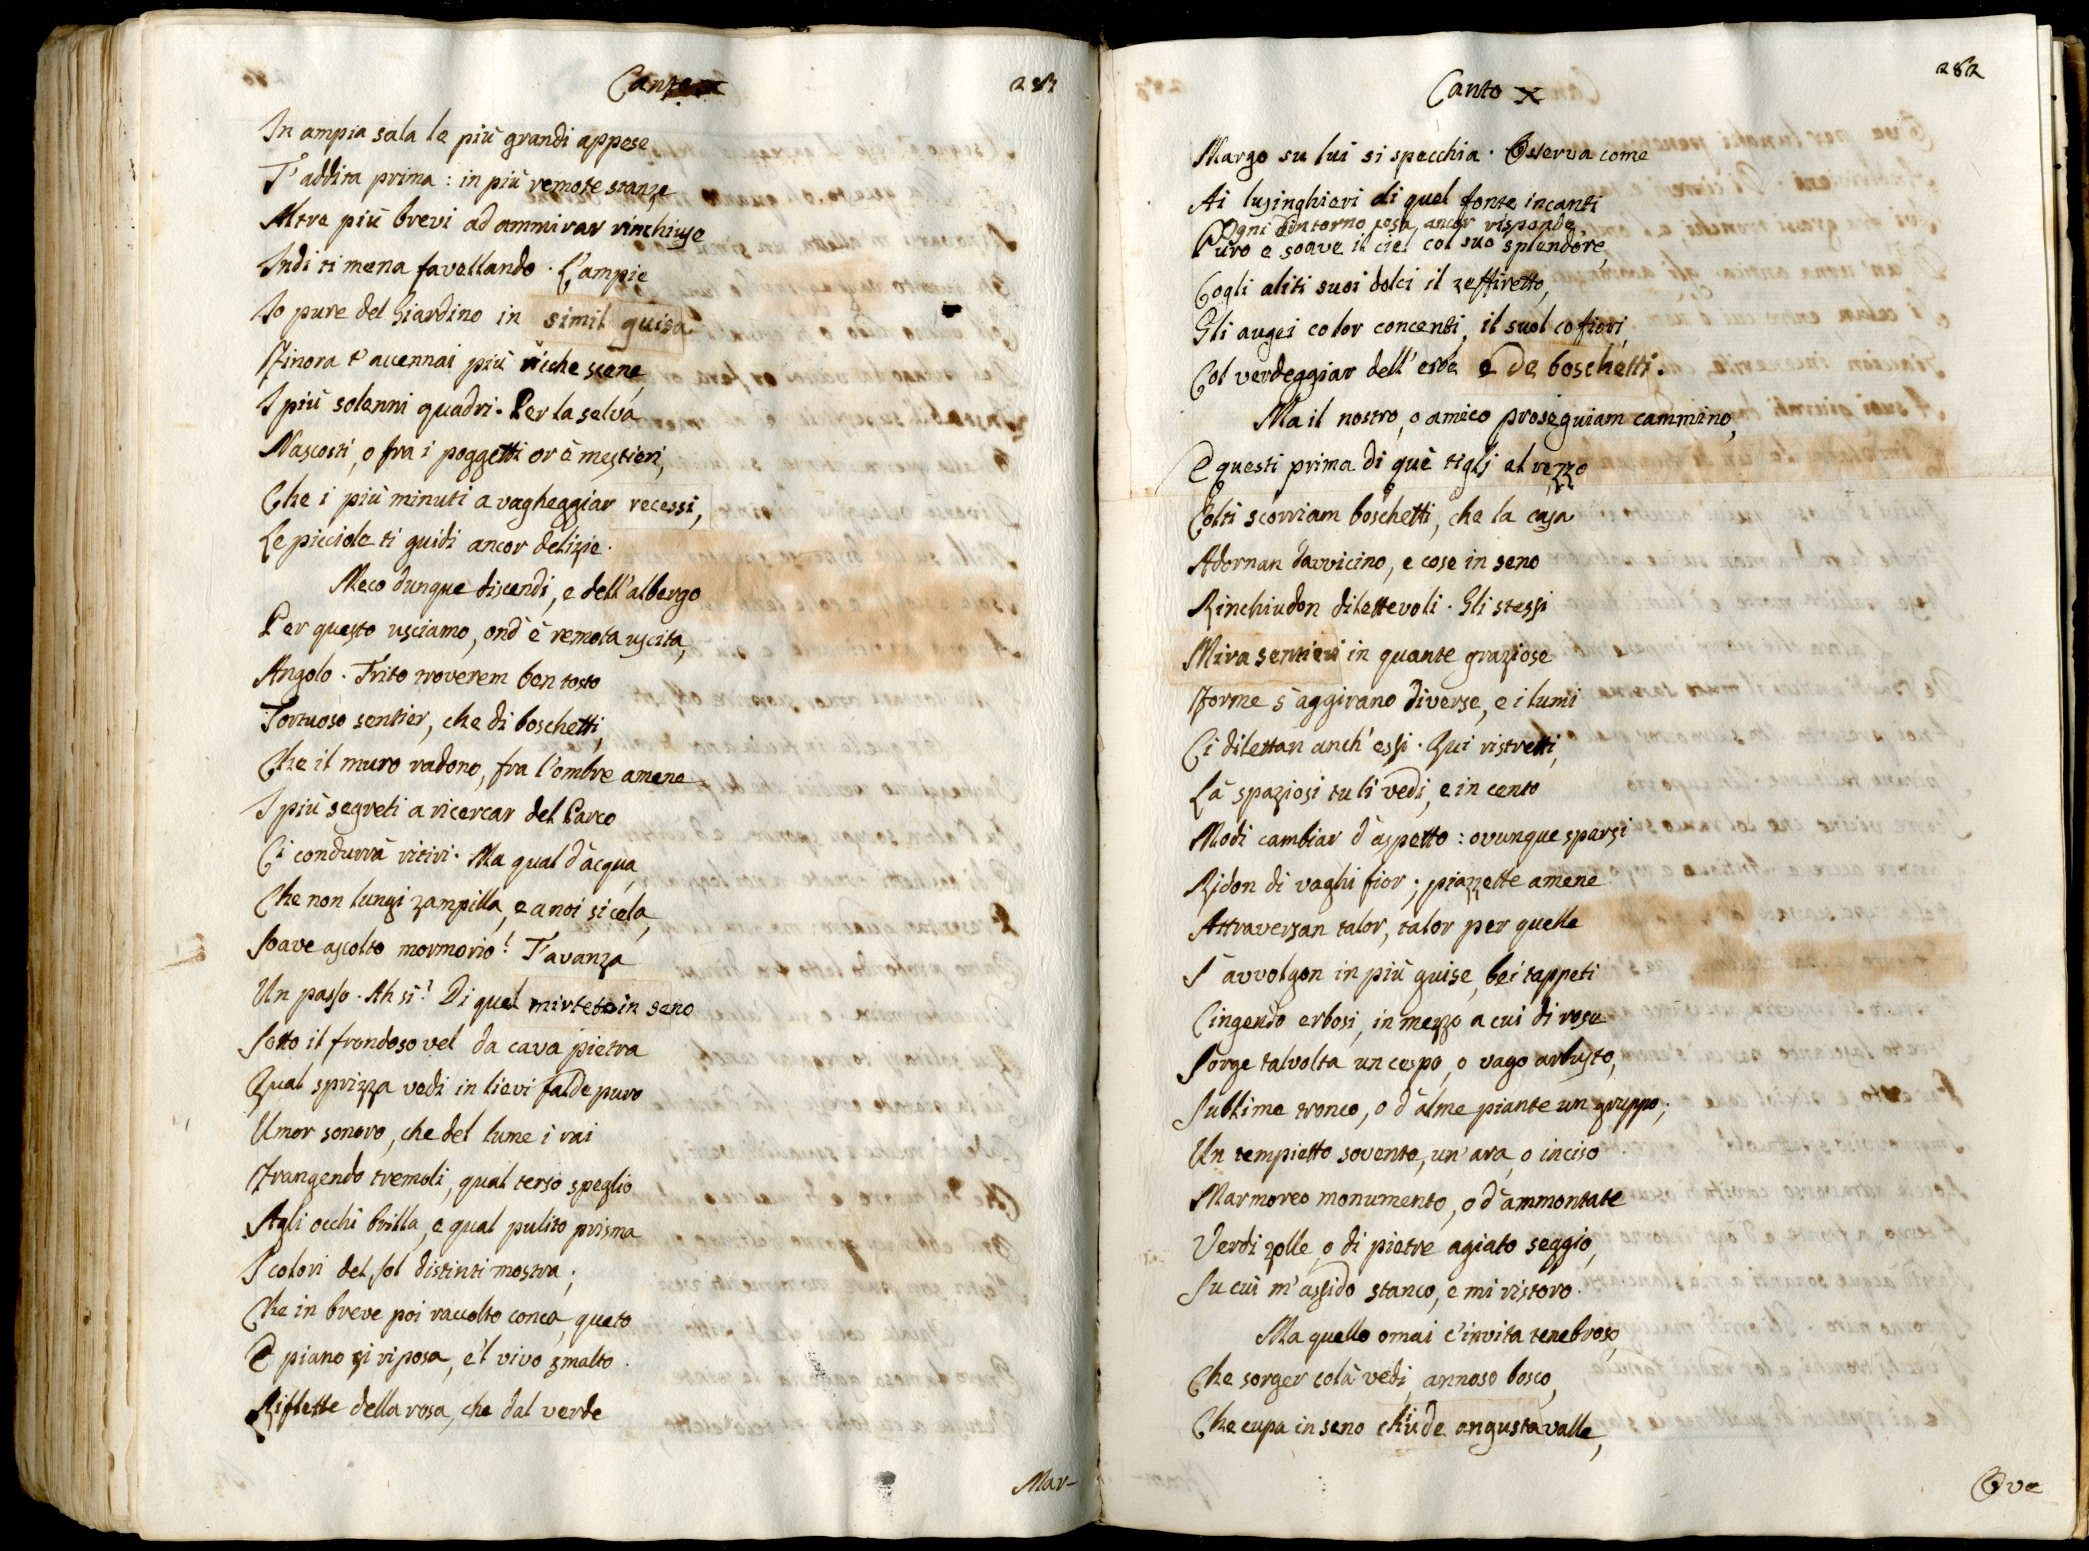 Canto X
281
In ampia sala le più grandi appese
T'addita prima : in più remote stanze
Altre più brevi ad ammirar rinchiuse
Indi ti mena favellando . L'ampie
Io pure del Giardino in simil guisa
Finora t'accennai più ricche scene,
I più solenni quadri . Per la selva
Nascosti, o fra i poggetti or è mestieri,
Che i più minuti a vagheggiar recessi,
Le picciole ti guidi ancor delizie .
Meco dunque discendi, e dell'albergo
Per questo usciamo, ond'è remota uscita,
Angolo . Trito troverem ben tosto
Tortuoso sentier, che di boschetti,
Che il muro radono, fra l'ombre amene
I più segreti a ricercar del Parco
Ci condurrà ritiri . Ma qual d'acqua,
Che non lungi zampilla, e a noi si cela,
Soave ascolto mormorio! T'avanza
Un passo . Ah sì! Di quel mirteto in seno
Sotto il frondoso vel da cava pietra
Qual sprizza vedi in lievi falde puro
Umor sonoro, che del lume i rai
Frangendo tremoli, qual terso speglio
Agli occhi brilla, e qual pulito prisma
I colori del sol distinti mostra ;
Che in breve poi raccolto conca, queto
E piano si riposa, e'l vivo smalto
Riflette della rosa, che dal verde
Mar-
Canto X
282
Margo su lui si specchia . Osserva come
Ai lusinghieri di quel fonte incanti
Ogni dintorno cosa ancor risponde,
Puro e soave il ciel col suo splendore,
Cogli aliti suoi dolci il zeffiretto,
Gli augei co lor concenti, il suol co fiori,
Col verdeggiar dell'erbe e de boschetti .
Ma il nostro, o amico proseguiam cammino,
E questi prima di què tiglj al rezzo
Colti scorriam boschetti, che la casa
Adornan davvicino, e cose in seno
Rinchiudon dilettevoli . Gli stessi
Mira sentieri in quante graziose
Forme s'aggirano diverse, e i lumi
Ci dilettan anch'essi . Qui ristretti,
Là spaziosi tu li vedi, e in cento
Modi cambiar d'aspetto : ovunque sparsi
Ridon di vaghi fior ; piazzette amene
Attraversan talor, talor per quelle
S'avvolgon in più guise, bei tappeti
Cingendo erbosi, in mezzo a cui di rose
Sorge talvolta un cespo, o vago arbusto,
Sublime tronco, o d'alme piante un gruppo ;
Un tempietto sovente, un'ara, o inciso
Marmoreo monumento, o d'ammontate
Verdi zolle, o di pietre agiato seggio,
Su cui m'assido stanco, e mi ristoro .
Ma quello omai c'invita tenebroso,
Che sorger colà vedi, annoso bosco,
Che cupa in seno chiude angusta valle,
Ove